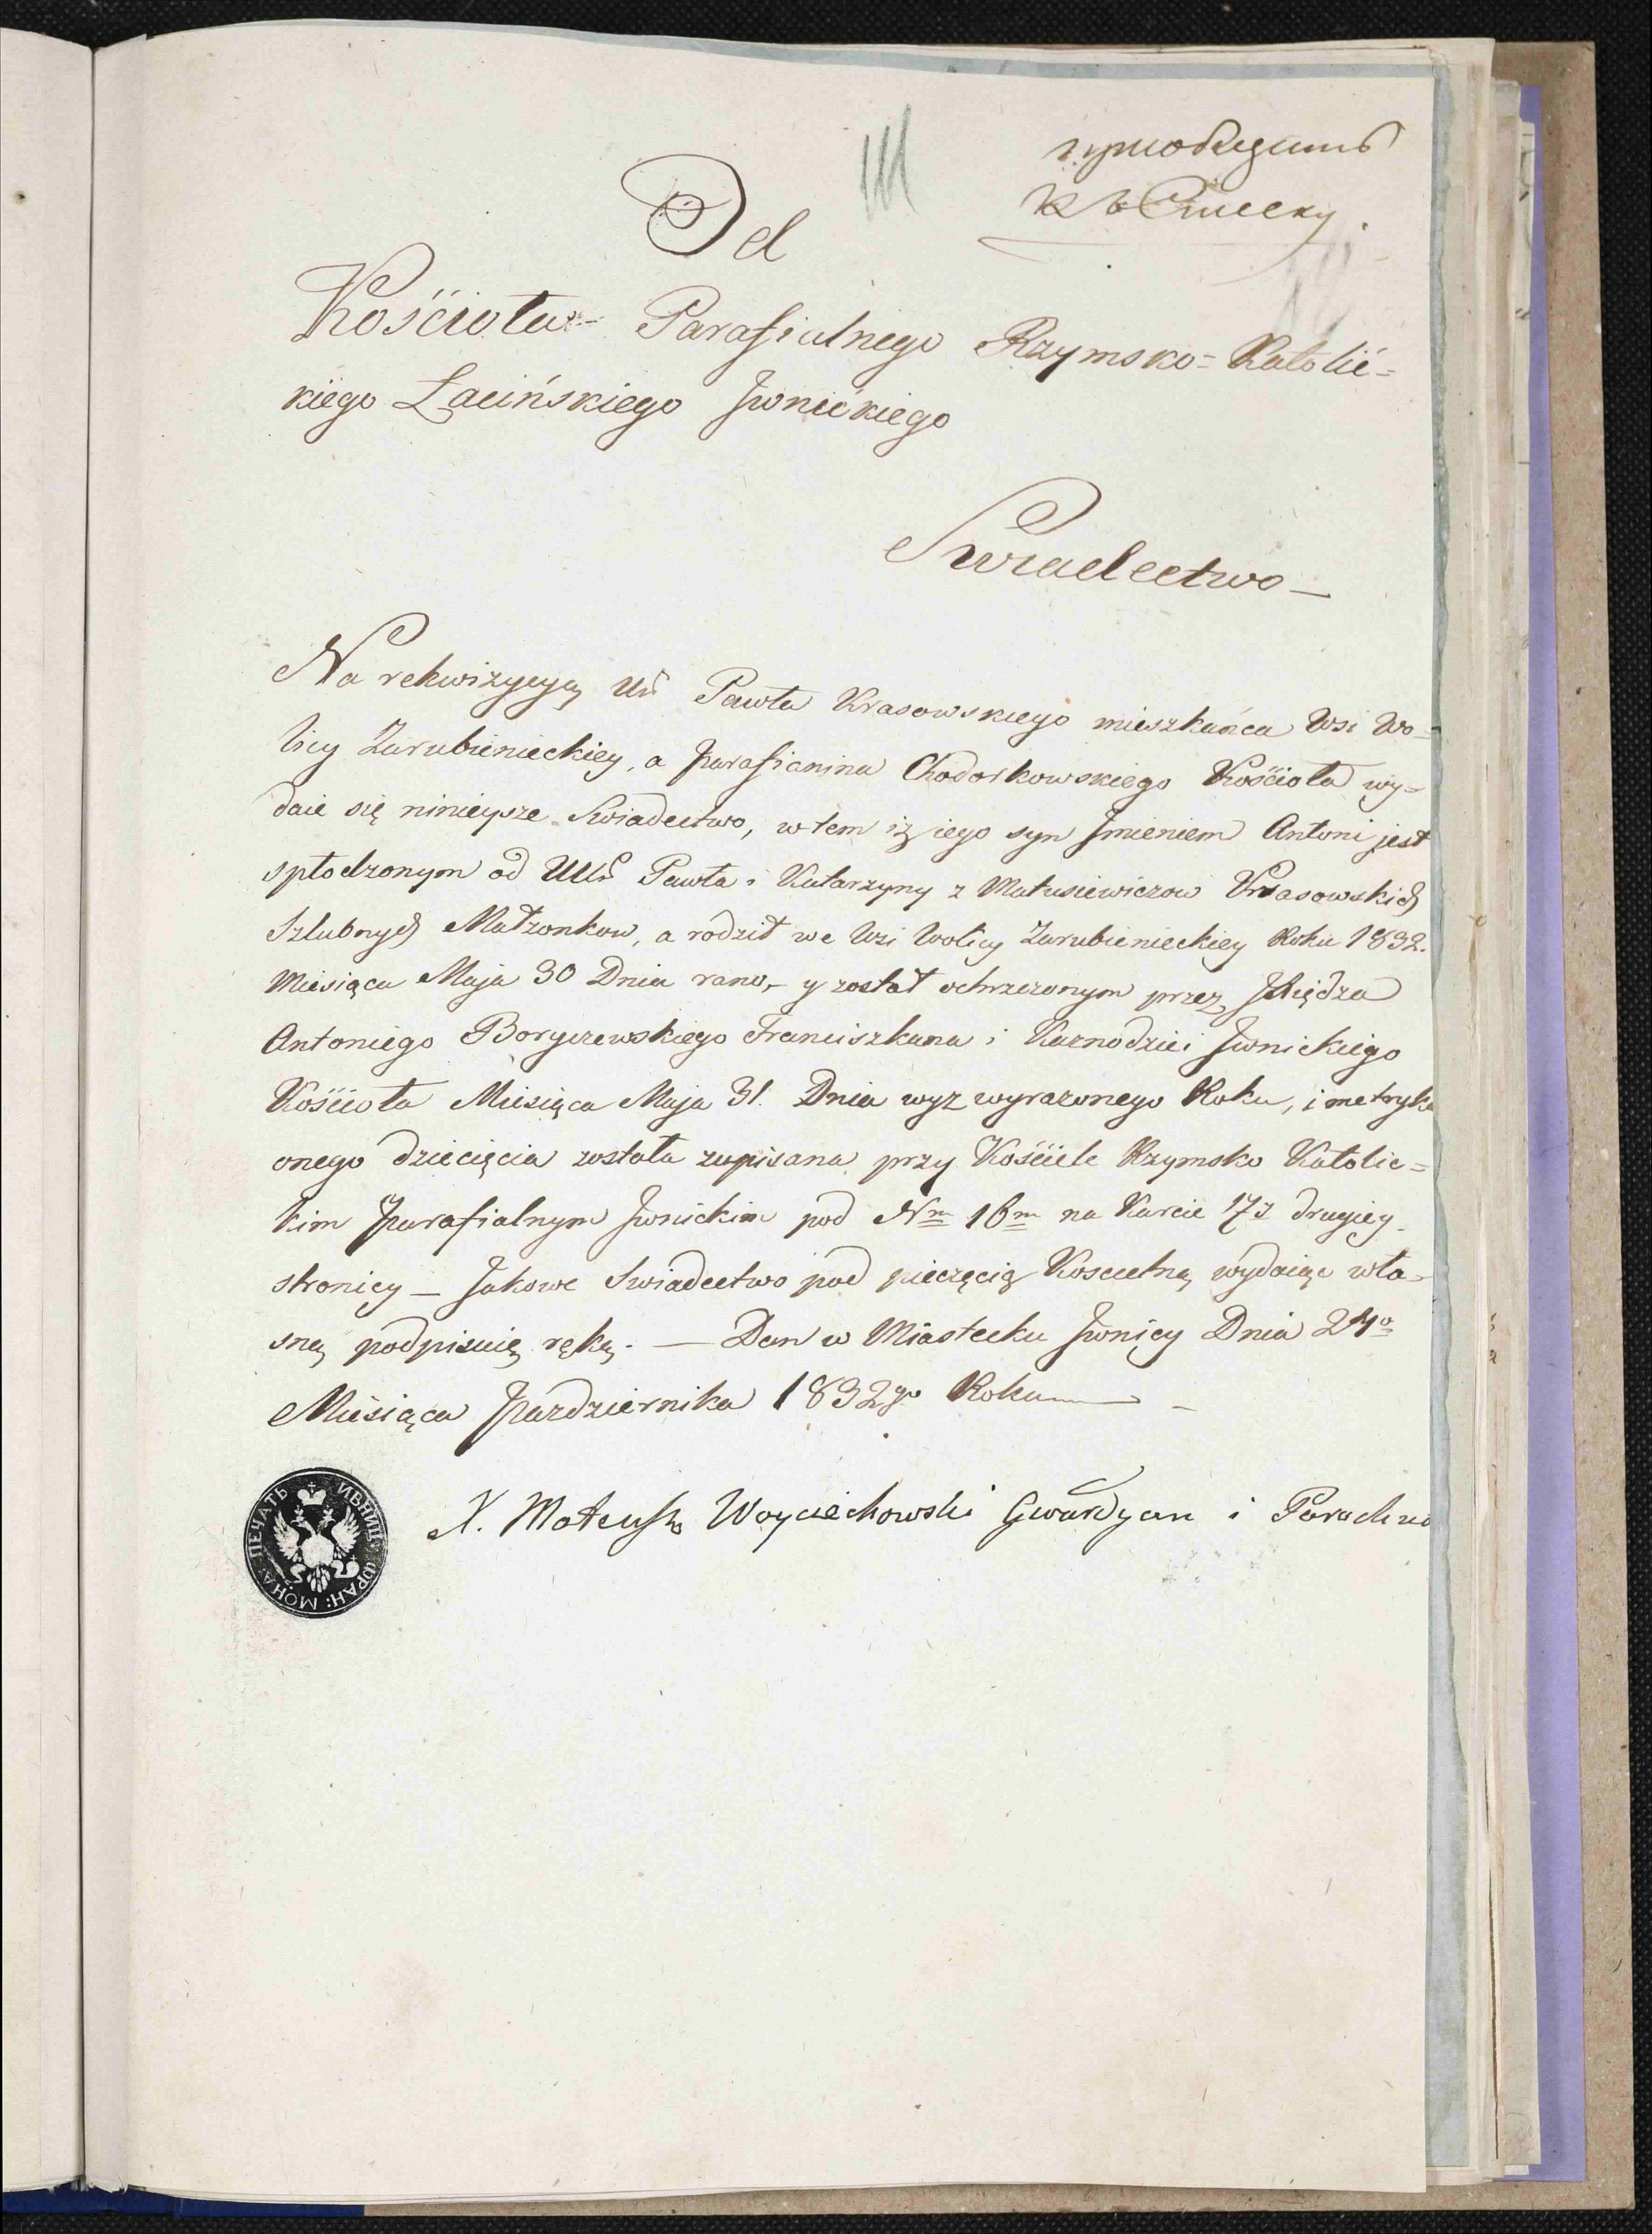 111
приобщить
къ Списку.
Od
Kościoła Parafialnego Rzymsko=Katolic=
kiego Łacińskiego Jwnickiego
Swiadectwo_
Na rekwizycyą Ur̃ Pawła Krasowskiego mieszkańca Wsi Wo=
licy Zarubienieckiey, a parafianina Chodorkowskiego Kościoła wy=
daie się ninieysze Swiadectwo, w tem iż iego syn Jmieniem Antoni jest
spłodzonym od UUr̃ Pawła i Katarzyny z Matusiewiczow Krasowskich
Szlubnych Małzonkow, a rodził we Wsi Wolicy Zarubienieckiey Roku 1832.
Miesiąca Maja 30 Dnia rano,- y został ochrzczonym przez Xiędza
Antoniego Boryczewskiego Franciszkana i Kaznodziei Jwnickiego
Kościoła Miesiąca Maja 31. Dnia wyz wyrazonego Roku, i metryka
onego dziecięcia została zapisana przy Kościele Rzymsko Katolic=
kim Parafialnym Jwnickim pod Nm 16m na Karcie 173 drugiey
stronicy _ Jakowe Swiadectwo pod pieczęcią Koscielną wydaiąc wła-
sną podpisuię ręką. — Dan w Miastecku Jwnicy Dnia 24o
Miesiąca Pazdziernika 1832go Roku
X. Mateusz Woyciechowski Gwardyan i Paroch
ПЕЧАТЬ ИВНИЦ: ФРАН: МОНА: